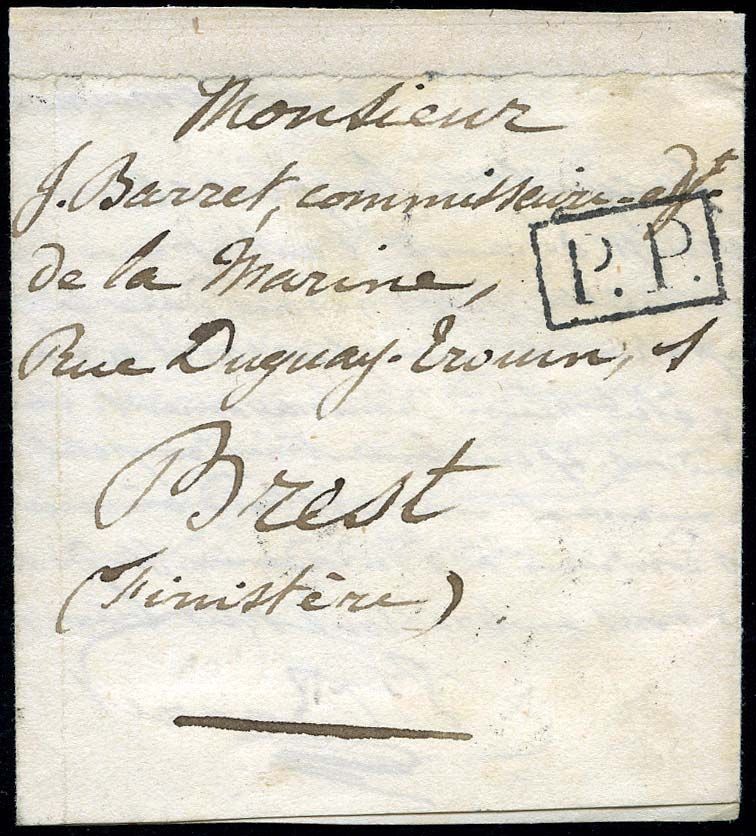 Monsieur
J. Barret, commissaire-adjt
de la Marine,
P.P.
Rue Duguay-Trouin, 1
Brest
(Finistère)